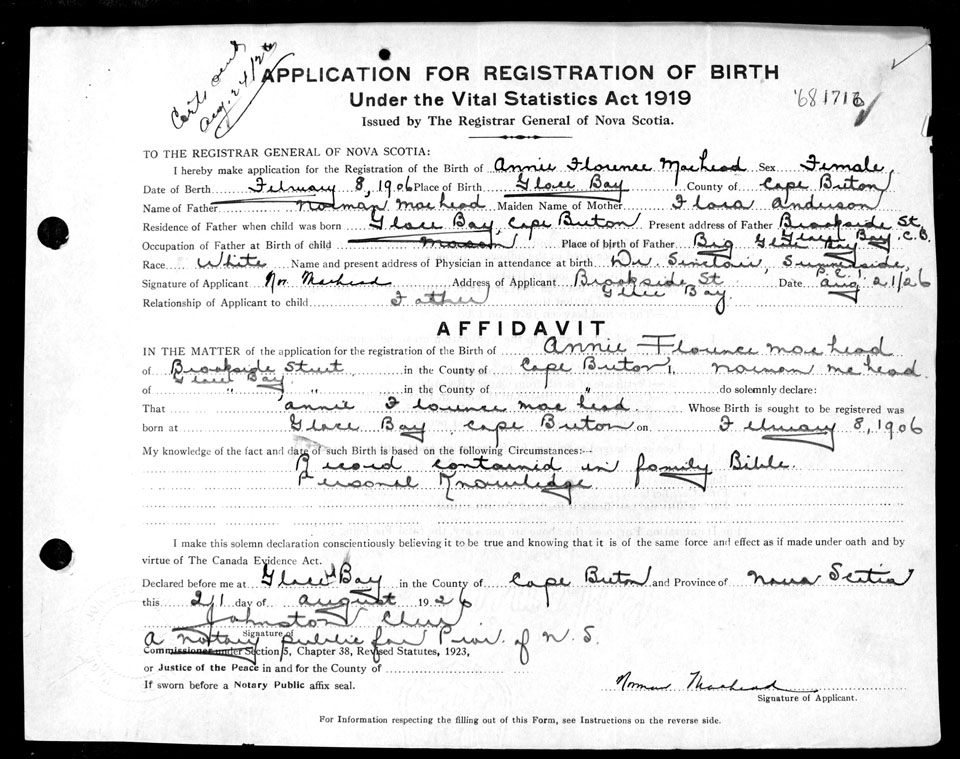 Certs sent
Aug. 24/26
APPLICATION FOR REGISTRATION OF BIRTH
Under the Vital Statistics Act 1919
Issued by The Registrar General of Nova Scotia.
'68
TO THE REGISTRAR GENERAL OF NOVA SCOTIA:
I hereby make application for the Registration of the Birth of Annie Florence MacLead Sex Female
Date of Berth February 8, 1906 Place of Birth Glace Bay County of Cape Breton
Name of Father Norman MacLead Maiden Name of Mother Flora Anderson
Residence of Father when child was born Glace Bay, Cape Breton Present address of Father Brookside St,
Glace Bay, C.B.
Occupation of Father at Birth of child Mason Place of birth of Father Big
Race White Name and present address of Physician in attendance at birth Dr. Sinclair, Summerside,
P.E.I.
Signature of Applicant Nor. MacLead Address of Applicant Brookside St Date Aug 21/26
Glace Bay.
Relationship of Applicant to child Father
AFFIDAVIT
IN THE MATTER of the application for the registration of the Birth of Annie Florence MacLead
of Brookside Street in the County of Cape Breton, Norman McLead
Glace Bay
of " " in the County of " do solemnly declare:
That Annie Florence MacLead Whose Birth is sought to be registered was
born at Glace Bay, Cape Breton on February 8, 1906
My knowledge of the fact and date of such Birth is based on the following Circumstances:—
Record contained in family Bible.
Personal Knowledge
I make this solemn declaration conscientiously believing it to be true and knowing that it is of the same force and effect as if made under oath and by
virtue of The Canada Evidence Act.
Declared before me at Glace Bay in the County of Cape Breton and Province of Nova Scotia
this 21 day of August 1926
Johnston
Signature of
A Notary Public for Prov. of N.S.
Commissioner under Section 5, Chapter 38, Revised Statutes, 1923,
or Justice of the Peace in and for the County of
If sworn before a Notary Public affix seal.
Norman MacLead
Signature of Applicant.
For Information respecting the filling out of this Form, see Instructions on the reverse side.